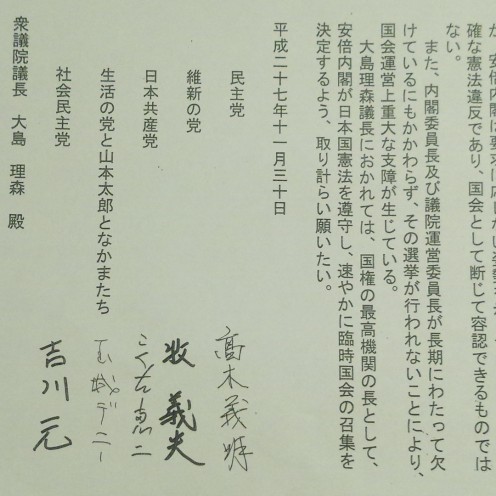 が、安倍内閣は要求に応じない姿勢
確な憲法違反であり、国会として断じて容認できるものでは
ない。
また、内閣委員長及び議院運営委員長が長期にわたって欠
けているにもかかわらず、その選挙が行われないことにより、
国会運営上重大な支障が生じている。
大島理森議長におかれては、国権の最高機関の長として、
安倍内閣が日本国憲法を遵守し、速やかに臨時国会の召集を
決定するよう、取り計らい願いたい。
平成二十七年十一月三十日
民主党 高木義明
維新の党 牧義夫
日本共産党 こくた恵二
生活の党と山本太郎となかまたち 玉城デニー
社会民主党 吉川元
衆議院議長 大島 理森 殿